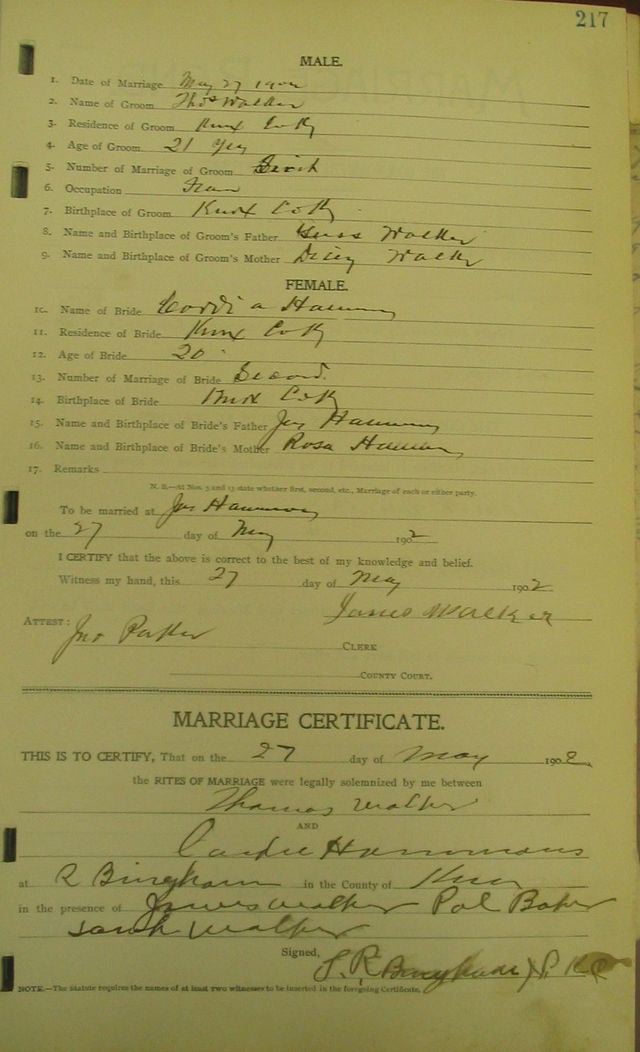 217
MALE.
1. Date of Marriage May 27 1902
2. Name of Groom Thos Walker
3. Residence of Groom Knox Co Ky
4. Age of Groom 21 yrs
5. Number of Marriage of Groom
6. Occupation
7. Birthplace of Groom Knox Co Ky
8. Name and Birthplace of Groom's Father Walker
9. Name and Birthplace of Groom's Mother Walker
FEMALE.
10. Name of Bride
11. Residence of Bride Knox Co Ky
12. Age of Bride 20
13. Number of Marriage of Bride Second.
14. Birthplace of Bride Knox Co Ky
15. Name and Birthplace of Bride's Father Jas
16. Name and Birthplace of Bride's Mother Rosa
17. Remarks
N. B.—At Nos. 5 and 13 state whether first, second, etc., Marriage of each or either party.
To be married at Jas
on the 27 day of May 1902
I CERTIFY that the above is correct to the best of my knowledge and belief.
Witness my hand, this 27 day of May 1902
James Walker
ATTEST: Jno Parker
CLERK
COUNTY COURT.
MARRIAGE CERTIFICATE.
THIS IS TO CERTIFY, That on the 27 day of May 1902
the RITES OF MARRIAGE were legally solemnized by me between
Thomas Walker
AND
Hammons
at R Bingham in the County of Knox
in the presence of James Walker Pal Baker
Sarah Walker
Signed, Bingham J.P.K.C
NOTE.—The Statute requires the names of at least two witnesses to be inserted in the foregoing Certificate.